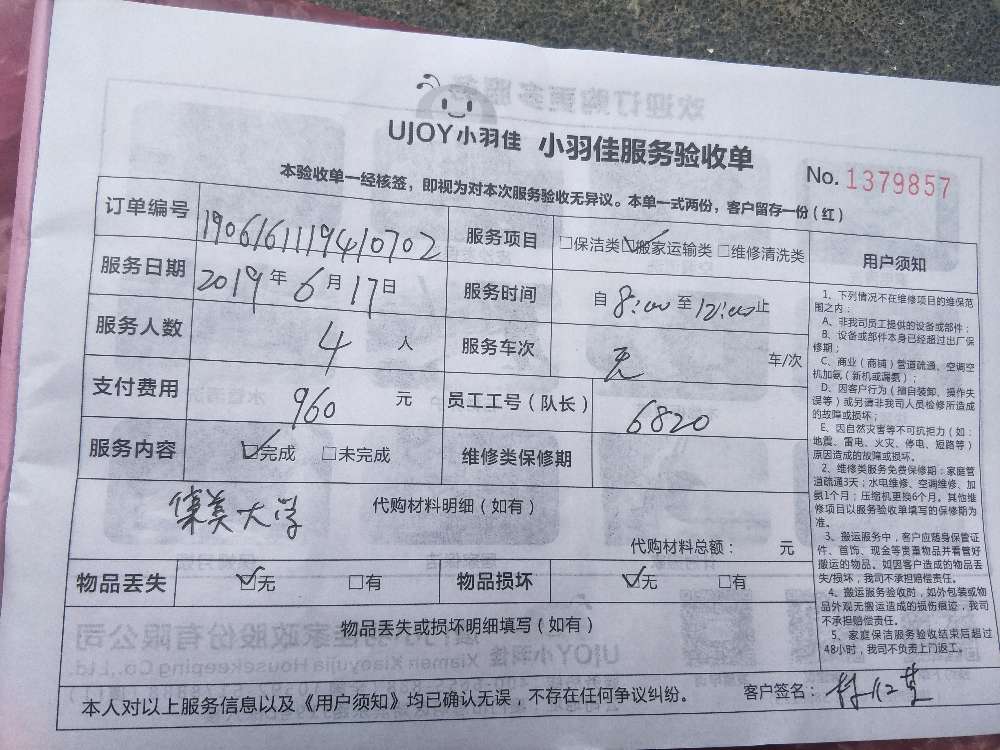 UJOY小羽佳 小羽佳服务验收单
No. 1379857
本验收单一经核签，即视为对本次服务验收无异议。本单一式两份，客户留存一份（红）
订单编号 1906161119410702 服务项目 □保洁类 ☑搬家运输类 □维修清洗类
服务日期 2019年6月17日 服务时间 自8:00至12:00止
服务人数 4 人 服务车次 无 车/次
支付费用 960 元 员工工号（队长） 6820
服务内容 ☑完成 □未完成 维修类保修期
集美大学 代购材料明细（如有）
代购材料总额： 元
物品丢失 ☑无 □有 物品损坏 ☑无 □有
物品丢失或损坏明细填写（如有）
本人对以上服务信息以及《用户须知》均已确认无误，不存在任何争议纠纷。 客户签名：
用户须知
1、下列情况不在维修项目的维保范
围之内：
A、非我司员工提供的设备或部件；
B、设备或部件本身已经超过出厂保
修期；
C、商业（商铺）管道疏通、空调空
机加氨（新机或漏氨）；
D、因客户行为（擅自装卸、操作失
误等）或另请非我司人员检修所造成
的故障或损坏；
E、因自然灾害等不可抗拒力（如：
地震、雷电、火灾、停电、短路等）
原因造成的故障或损坏。
2、维修类服务免费保修期：家庭管
道疏通3天；水电维修、空调维修、加
氨1个月；压缩机更换6个月。其他维
修项目以服务验收单填写的保修期为
准。
3、搬运服务中，客户应随身保管证
件、首饰、现金等贵重物品并看管好
搬运的物品。如因客户造成的物品丢
失/损坏，我司不承担赔偿责任。
4、搬运服务验收前，如外包装或物
品外观无搬运造成的损伤痕迹，我司
不承担赔偿责任。
5、家庭保洁服务验收结束后超过
48小时，我司不负责上门返工。